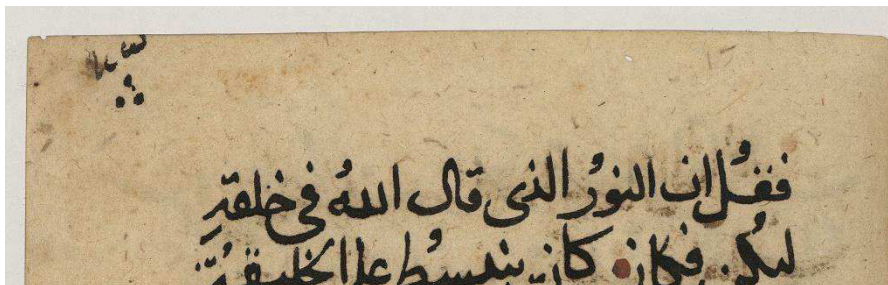 فقُل ان النورُ الذى قال اللهُ فى خلقتهِ
ليكن فكان كان ينبسطُ على الخليقةُ